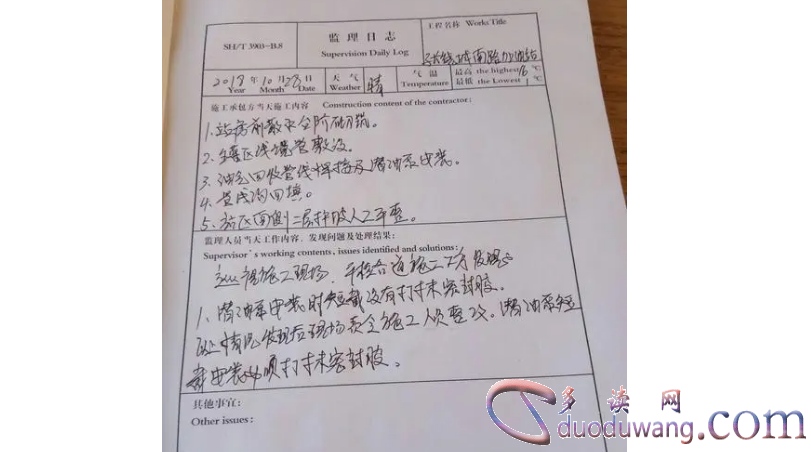 SH/T 3903-B.8
监理日志
Supervision Daily Log
工程名称 Works Title
城南路加油站
2018 年 10 月 28 日
Year Month Date
天气 晴
Weather
气温
Temperature
最高 the highest 16 ℃
最低 the Lowest 1 ℃
施工承包方当天施工内容 Construction content of the contractor:
1. 站房前散水台阶砌筑。
2. 罐区线缆管敷设。
3. 油气回收管线焊接及潜油泵安装。
4. 管线沟回填。
5. 站区西侧二层护坡人工平整。
监理人员当天工作内容，发现问题及处理结果:
Supervisor's working contents, issues identified and solutions:
巡视施工现场，平检各道施工工序
1. 潜油泵安装时短截没有打抹密封胶。
处理情况 发现后现场责令施工人员整改。潜油泵短
截安装必须打抹密封胶。
其他事宜:
Other issues:
多读网
duoduwang.com